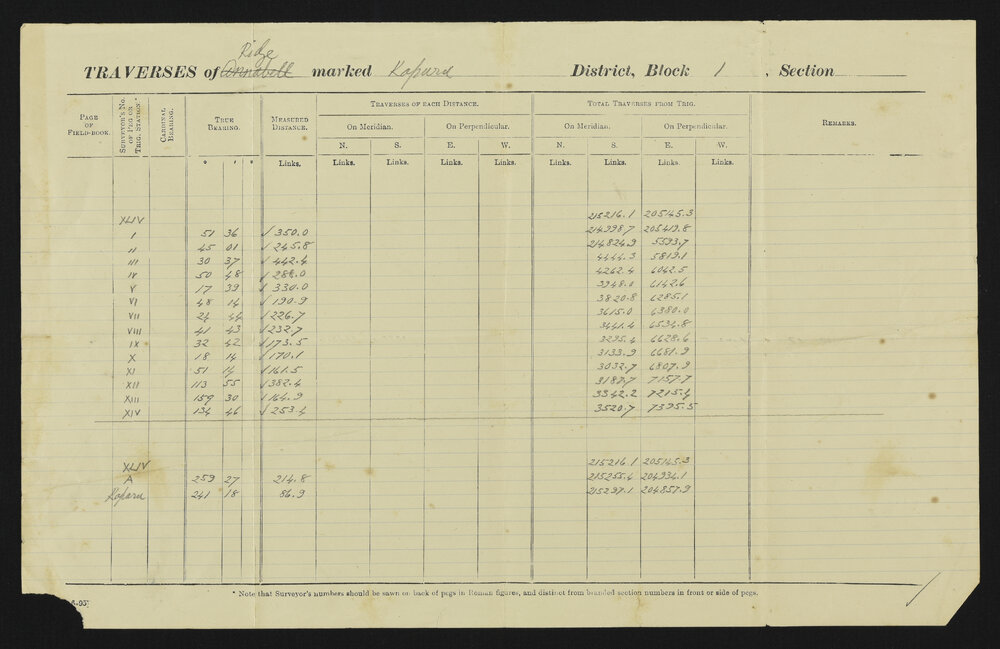 Ridge
TRAVERSES of Annabell marked Kapara District, Block 1, Section
PAGE OF FIELD-BOOK. SURVEYOR'S NO. OF PEG OR TRIG. STATION.* CARDINAL BEARING. TRUE BEARING. MEASURED DISTANCE. TRAVERSES OF EACH DISTANCE. TOTAL TRAVERSES FROM TRIG. REMARKS.
On Meridian. On Perpendicular. On Meridian. On Perpendicular.
N. S. E. W. N. S. E. W.
° ' " Links. Links. Links. Links. Links. Links. Links. Links. Links.
XLIV 215216.1 205145.3
I 51 36 √ 350.0 214998.7 205419.8
II 45 01 √ 245.8 214824.9 5593.7
III 30 37 √ 442.4 4444.3 5819.1
IV 50 48 √ 288.0 4262.4 6042.5
V 17 39 √ 330.0 3948.0 6142.6
VI 48 14 √ 190.9 3820.8 6285.1
VII 24 44 √ 226.7 3615.0 6380.0
VIII 41 43 √ 232.7 3441.4 6534.8
IX 32 42 √ 173.5 3295.4 6628.6
X 18 14 √ 170.1 3133.9 6681.9
XI 51 14 √ 161.5 3032.7 6807.9
XII 113 55 √ 382.4 3187.7 7157.7
XIII 159 30 √ 164.9 3342.2 7215.4
XIV 134 46 √ 253.4 3520.7 7395.5
XLIV 215216.1 205145.3
A 259 27 214.8 215255.4 204934.1
Kapara 241 18 86.9 215297.1 204857.9
* Note that Surveyor's numbers should be sawn on back of pegs in Roman figures, and distinct from branded section numbers in front or side of pegs.